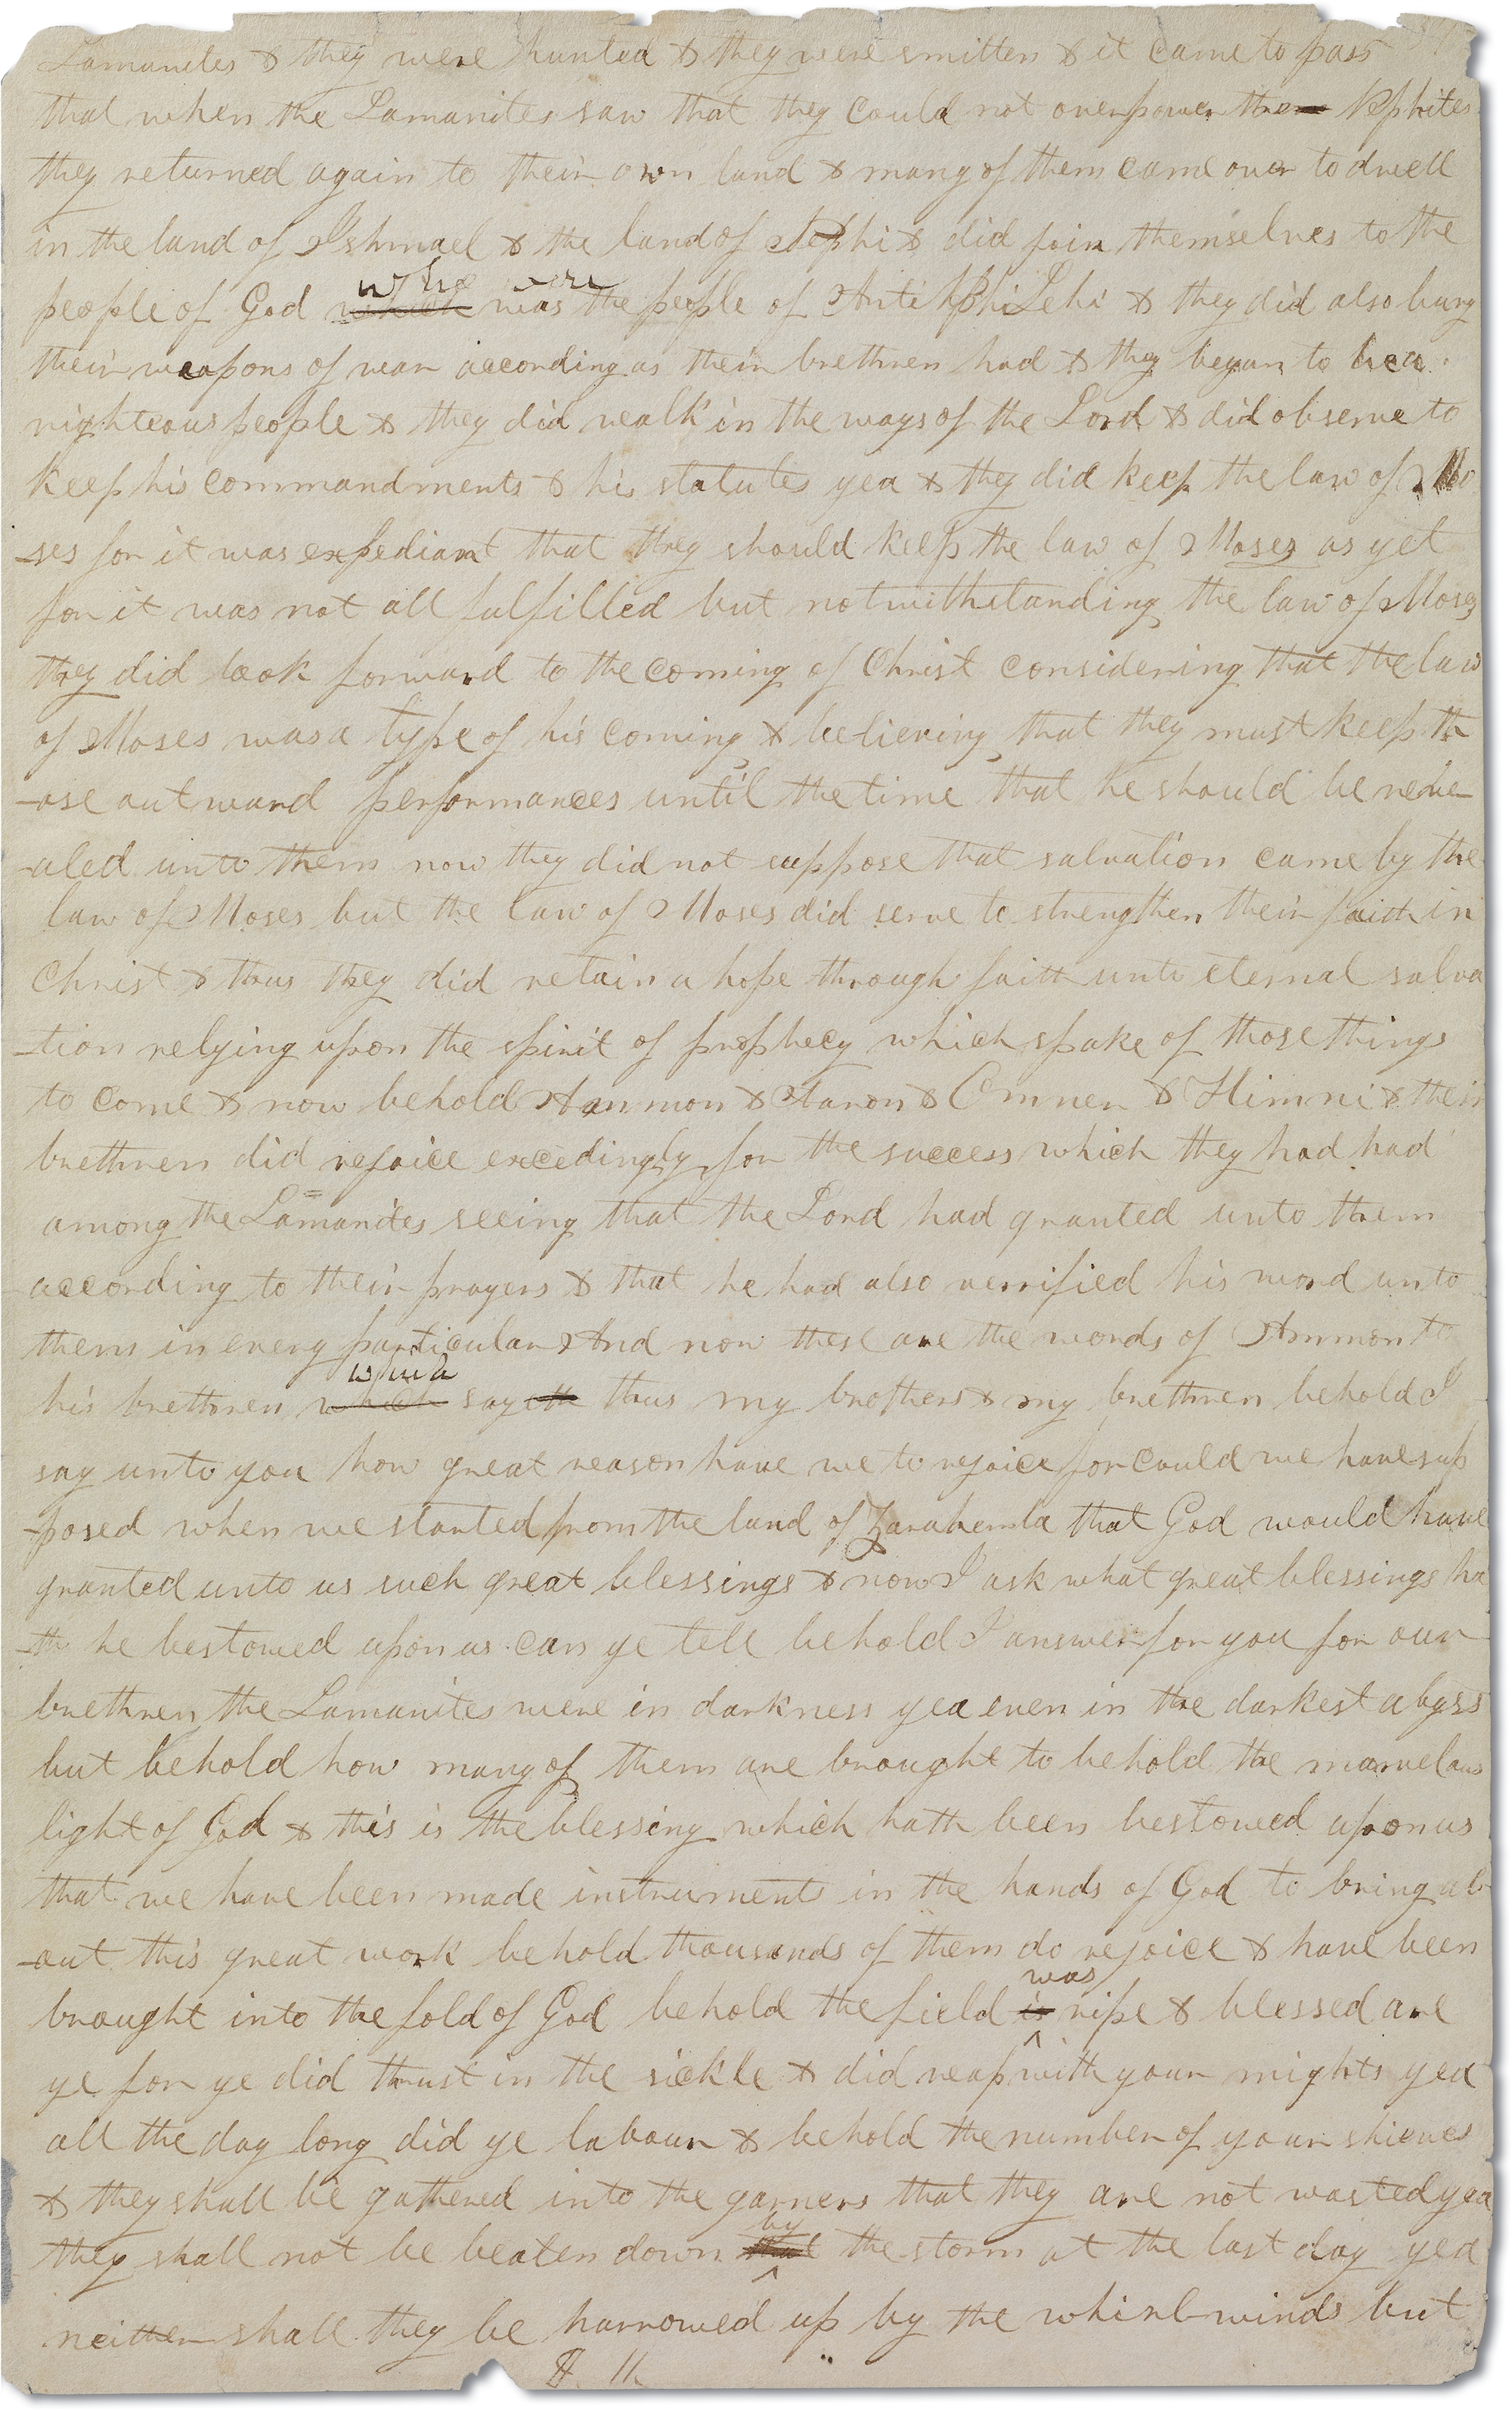 Lamanites & they were hunted & they were smitten & it came to pass
that when the Lamanites saw that they could not overpower the Nephites
they returned again to their own land & many of them came over to dwell
in the land of Ishmael & the land of Nephi & did join themselves to the
who were
people of God which was the people of Anti Nephi Lehi & they did also bury
their weapons of war according as their brethren had & they began to be a
righteous people & they did walk in the ways of the Lord & did observe to
keep his commandments & his statutes yea & they did keep the law of Mo
-ses for it was expediant that they should keep the law of Moses as yet
for it was not all fulfilled but notwithstanding the law of Moses
they did look forward to the coming of Christ considering that the law
of Moses was a type of his coming & believing that they must keep th
-ose outward performances until the time that he should be reve
-aled unto them now they did not suppose that salvation came by the
law of Moses but the law of Moses did serve to strengthen their faith in
Christ & thus they did retain a hope through faith unto eternal salva
-tion relying upon the spirit of prophecy which spake of those things
to come & now behold Ammon & Aaron & Omner & Himni & their
brethren did rejoice excedingly for the success which they had had
among the Lamanites seeing that the Lord had granted unto them
according to their prayers & that he had also verrified his word unto
them in every particular And now these are the words of Ammon to
his brethren which sayeth thus my brothers & my brethren behold I
say unto you how great reason have we to rejoice for could we have sup
-posed when we started from the land of Zarahemla that God would have
granted unto us such great blessings & now I ask what great blessings ha
-th he bestowed upon us can ye tell behold I answer for you for our
brethren the Lamanites were in darkness yea even in the darkest abyss
but behold how many of them are brought to behold the marvelous
light of God & this is the blessing which hath been bestowed upon us
that we have been made instruments in the hands of God to bring ab
-out this great work behold thousands of them do rejoice & have been
was
brought into the fold of God behold the field is ripe & blessed are
ye for ye did thrust in the sickle & did reap with your mights yea
all the day long did ye labour & behold the number of your shieves
& they shall be gathered into the garners that they are not wasted yea
by
they shall not be beaten down that the storm at the last day yea
neither shall they be harrowed up by the whirlwinds but